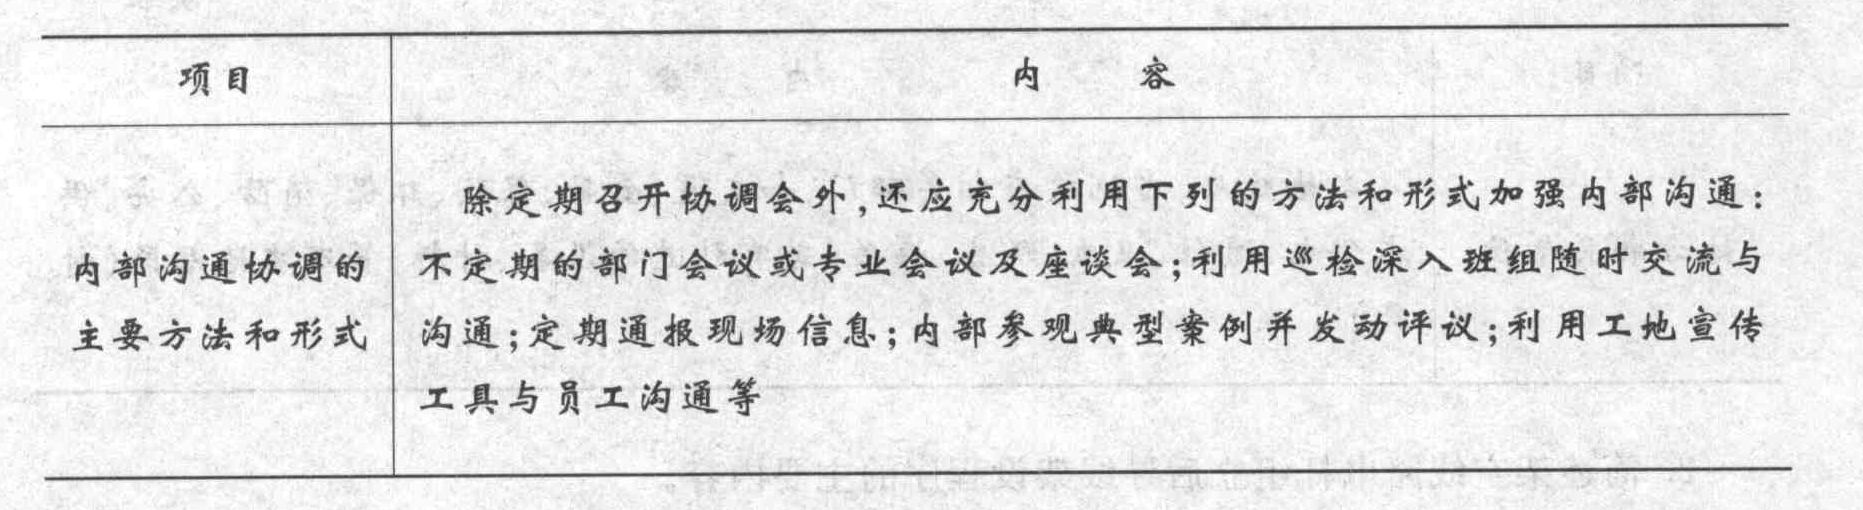 项目
内 容
内部沟通协调的
主要方法和形式
除定期召开协调会外,还应充分利用下列的方法和形式加强内部沟通:
不定期的部门会议或专业会议及座谈会;利用巡检深入班组随时交流与
沟通;定期通报现场信息;内部参观典型案例并发动评议;利用工地宣传
工具与员工沟通等